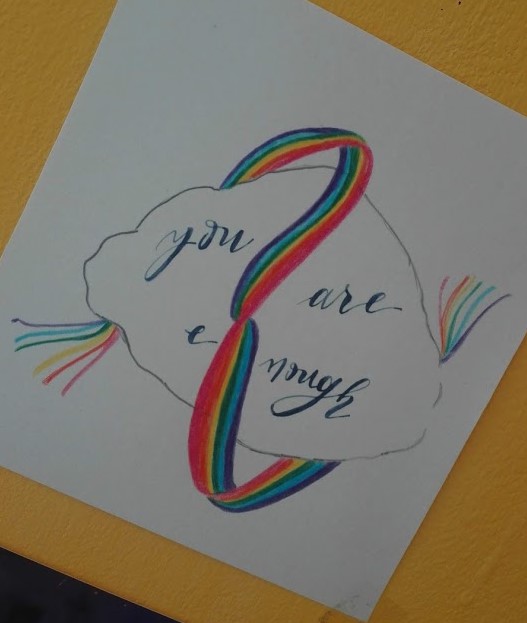 you
are
e nough